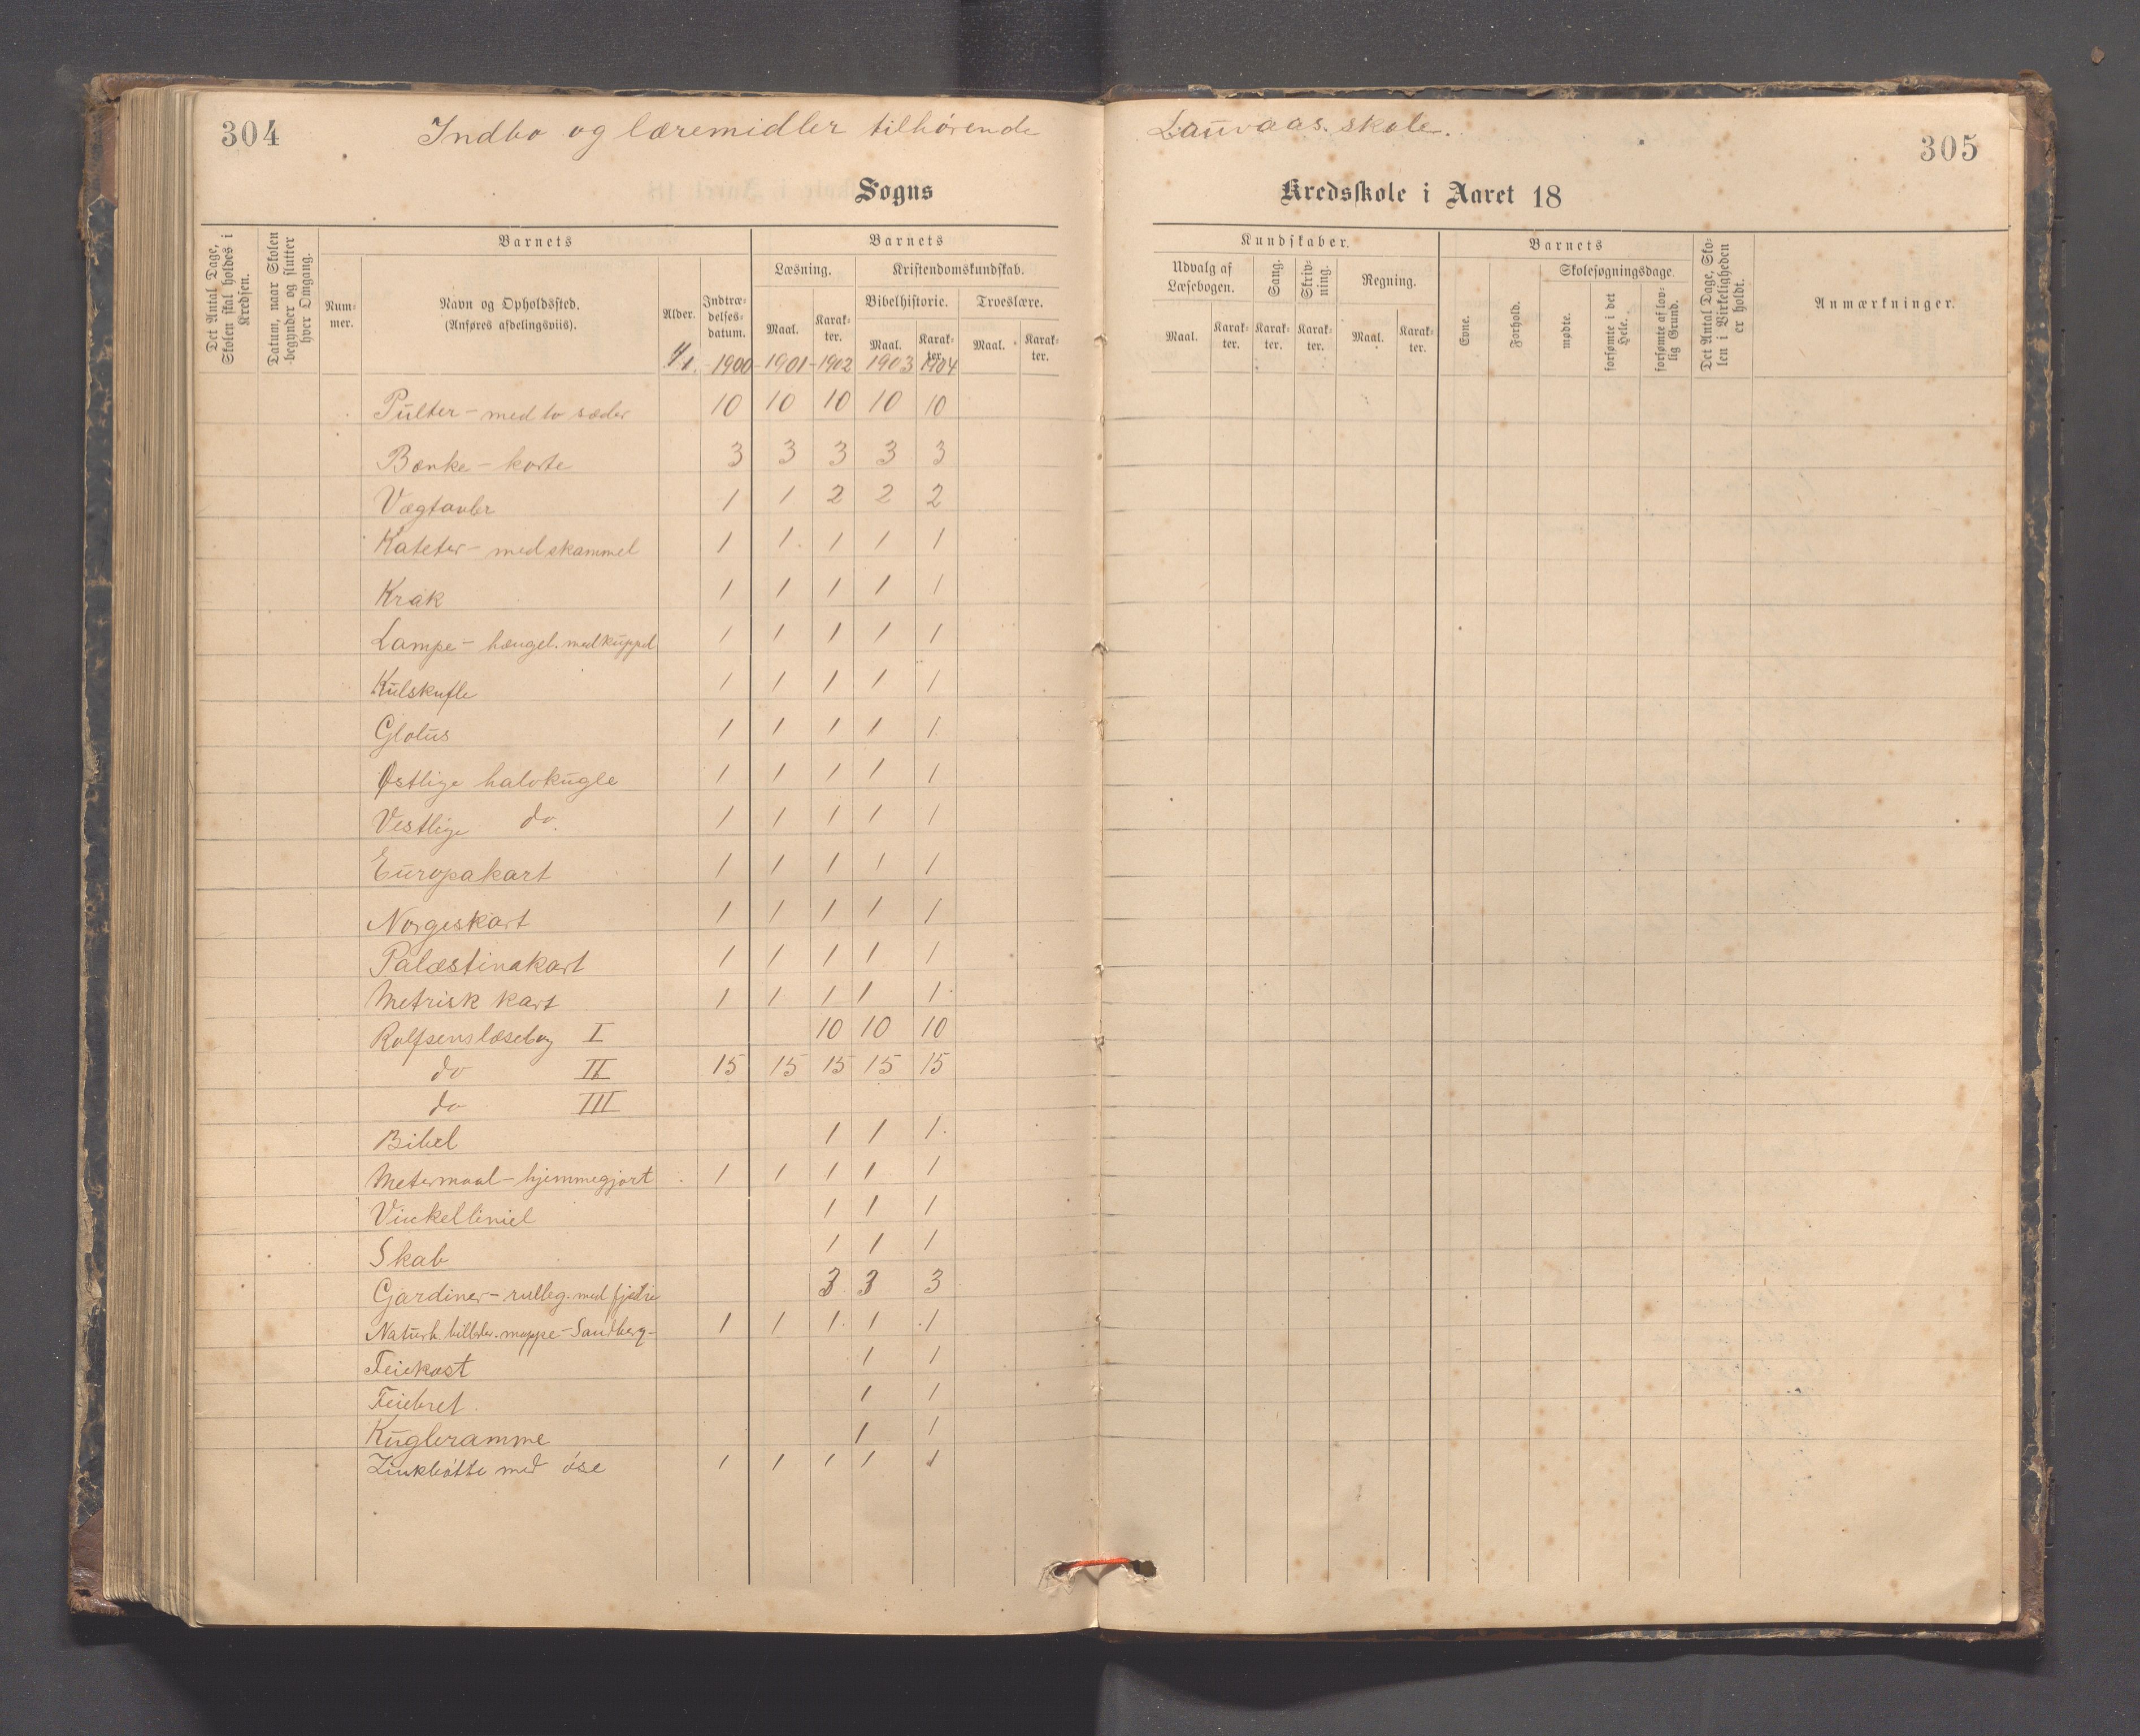 304
Indbo og læremidler tilhørende Lauvaas. skole.
305
Sogns Kredsskole i Aaret 18
Det Antal Dage, Skolen skal holdes i Kredsen.
Datum, naar Skolen begynder og slutter hver Omgang.
Barnets
Nummer.
Navn og Opholdssted. (Anføres afdelingsviis).
Alder.
Indtrædelsesdatum.
Barnets
Læsning.
Maal.
Karakter.
Kristendomskundskab.
Bibelhistorie.
Maal.
Karakter.
Troeslære.
Maal.
Karakter.
Kundskaber.
Udvalg af Læsebogen.
Maal.
Karakter.
Sang.
Karakter.
Skrivning.
Karakter.
Regning.
Maal.
Karakter.
Barnets
Evne.
Forhold.
Skolesøgningsdage.
mødte.
forsømte i det Hele.
forsømte af lovlig Grund.
Det Antal Dage, Skolen i Virkeligheden er holdt.
Anmærkninger.
1/1. 1900 1901 1902 1903 1904
Pulter - med to sæder 10 10 10 10 10
Bænke - korte 3 3 3 3 3
Vægtavler 1 1 2 2 2
Kateter - med skammel 1 1 1 1 1
Krak 1 1 1 1 1
Lampe - hængel. med kuppel 1 1 1 1 1
Kulskufle 1 1 1 1 1
Globus 1 1 1 1 1
Østlige halvkugle 1 1 1 1 1
Vestlige do. 1 1 1 1 1
Europakart 1 1 1 1 1
Norgeskart 1 1 1 1 1
Palæstinakart 1 1 1 1 1
Metrisk kart 1 1 1 1 1
Rolfsens læsebog I 10 10 10
do II 15 15 15 15 15
do III
Bibel 1 1 1
Metermaal - hjemmegjort 1 1 1 1 1
Vinkelliniel 1 1 1
Skab 1 1 1
Gardiner - rulleg. med fjedre 3 3 3
Naturh. billeder. mappe - Sandberg - 1 1 1 1 1
Feiekost 1 1
Feiebret. 1 1
Kugleramme 1 1
Zinkbøtte med øse 1 1 1 1 1